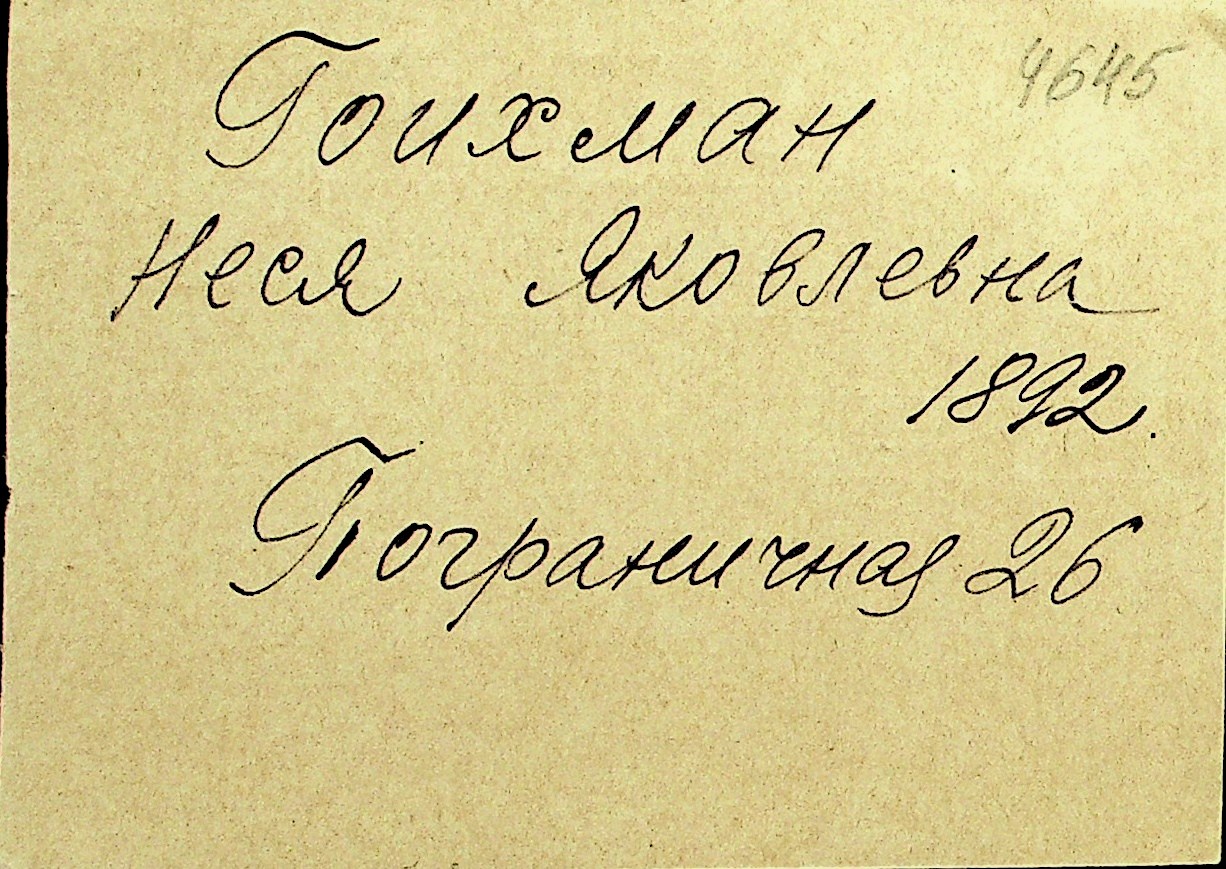 4645
Гоихман
Неся Яковлевна
1892.
Пограничная 26